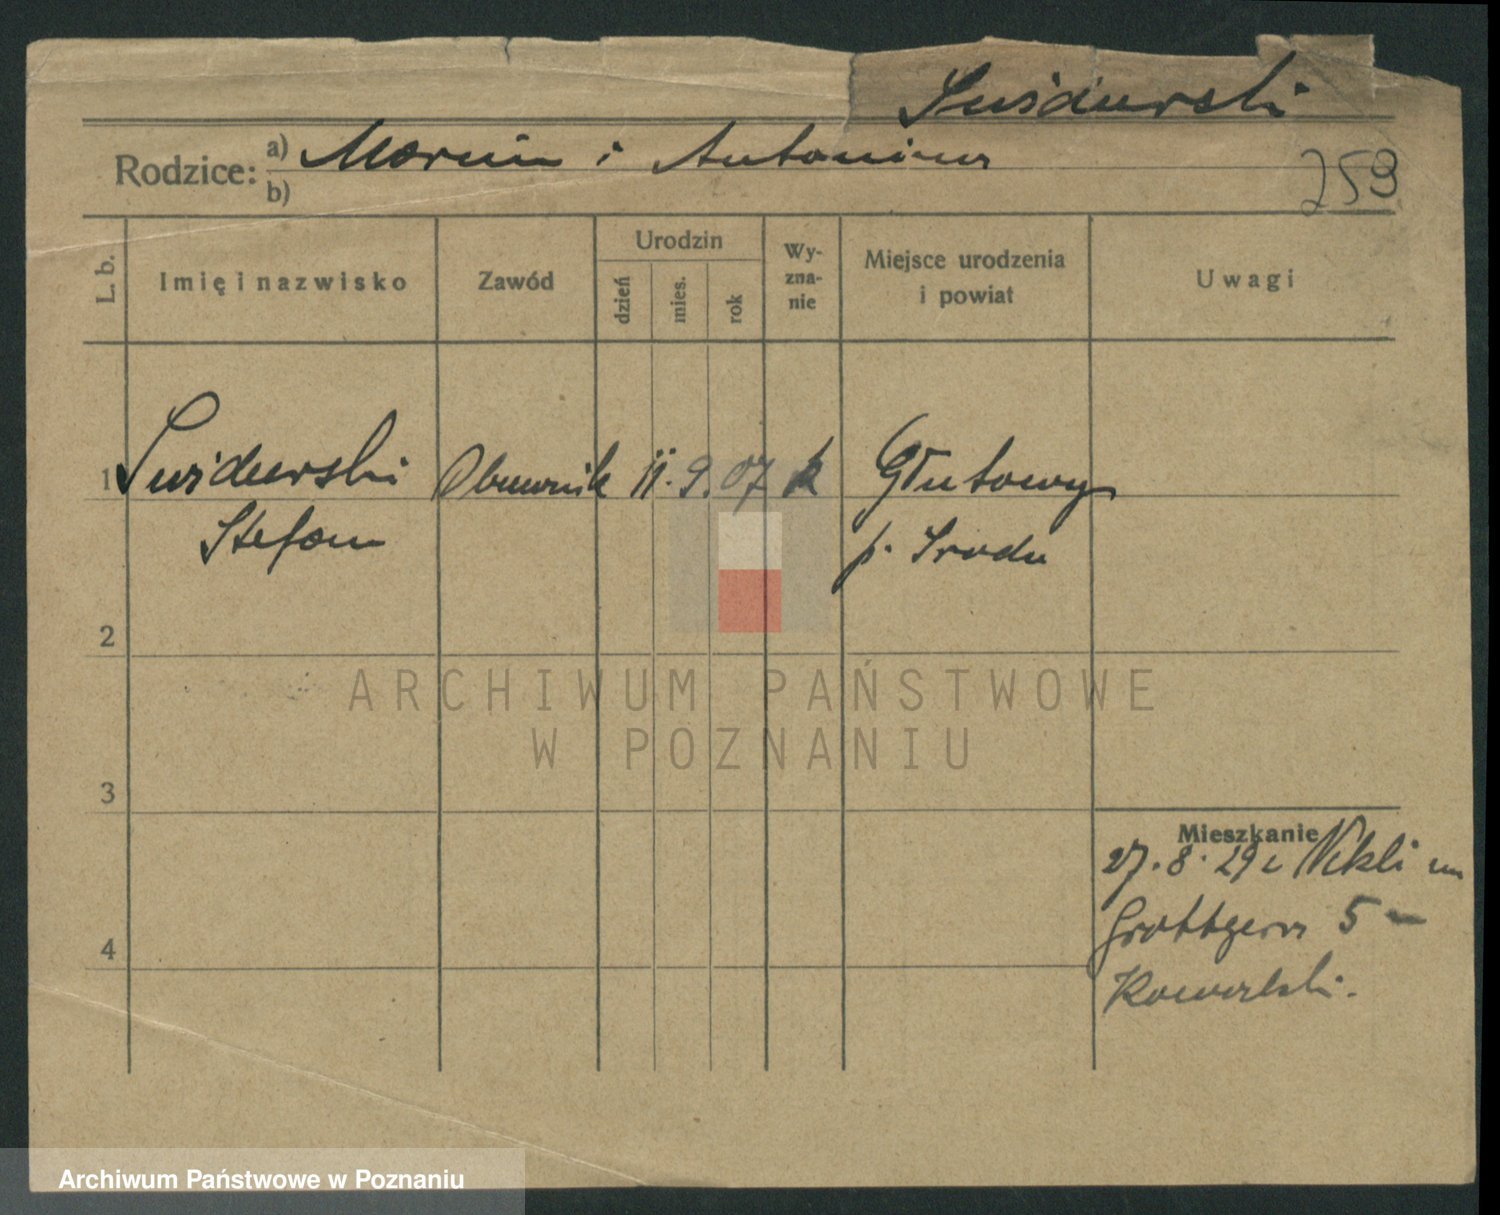 Swiderski
Rodzice: a) Marcin i Antonina
b)
259
L. b.
Imię i nazwisko
Zawód
Urodzin
dzień
mies.
rok
Wy-
zna-
nie
Miejsce urodzenia
i powiat
Uwagi
1 Swiderski Obuwnik 11. 9. 07 k
Stefan p. Sroda
2
3
4
Mieszkanie
27. 8. 29 z
Grottgera 5 –
Kowalski.
ARCHIWUM PAŃSTWOWE
W POZNANIU
Archiwum Państwowe w Poznaniu